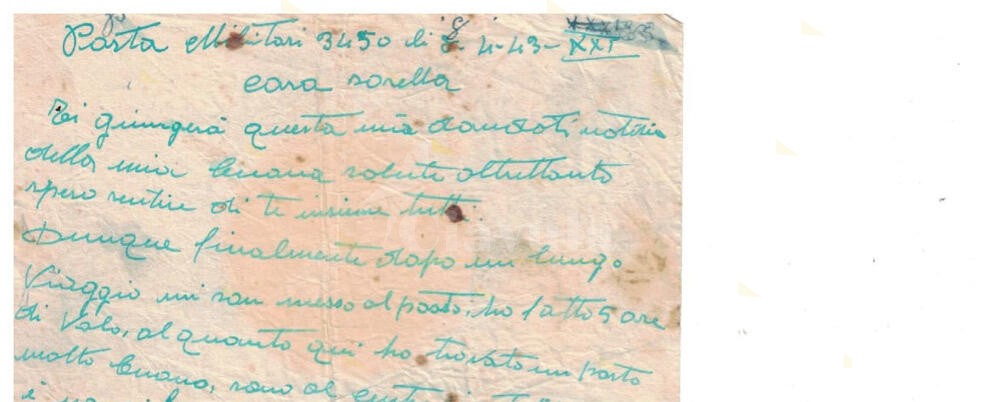 Posta Militari 3450 di 8-4-43-XXI
cara sorella
Ti giungerà questa mia dandoti notizia
della mia buona salute altrettanto
spero sentire di te insieme tutti.
Dunque finalmente dopo un lungo
Viaggio mi son messo al posto, ho fatto 5 ore
di Volo, al quanto qui ho trovato un posto
molto buono, sono al